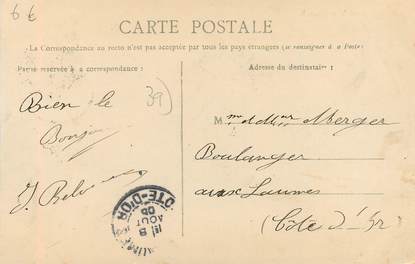 6 €
CARTE POSTALE
La Correspondance au recto n'est pas acceptée par tous les pays étrangers (se renseigner à a Poste)
Partie réservée à a correspondance :
Adresse du destinatai e :
39
Bien le
Bonjour
M me et Mr
Boulanger
aux Laumes
(Côte d'Or)
CÔTE-D'OR
8
AOUT
05